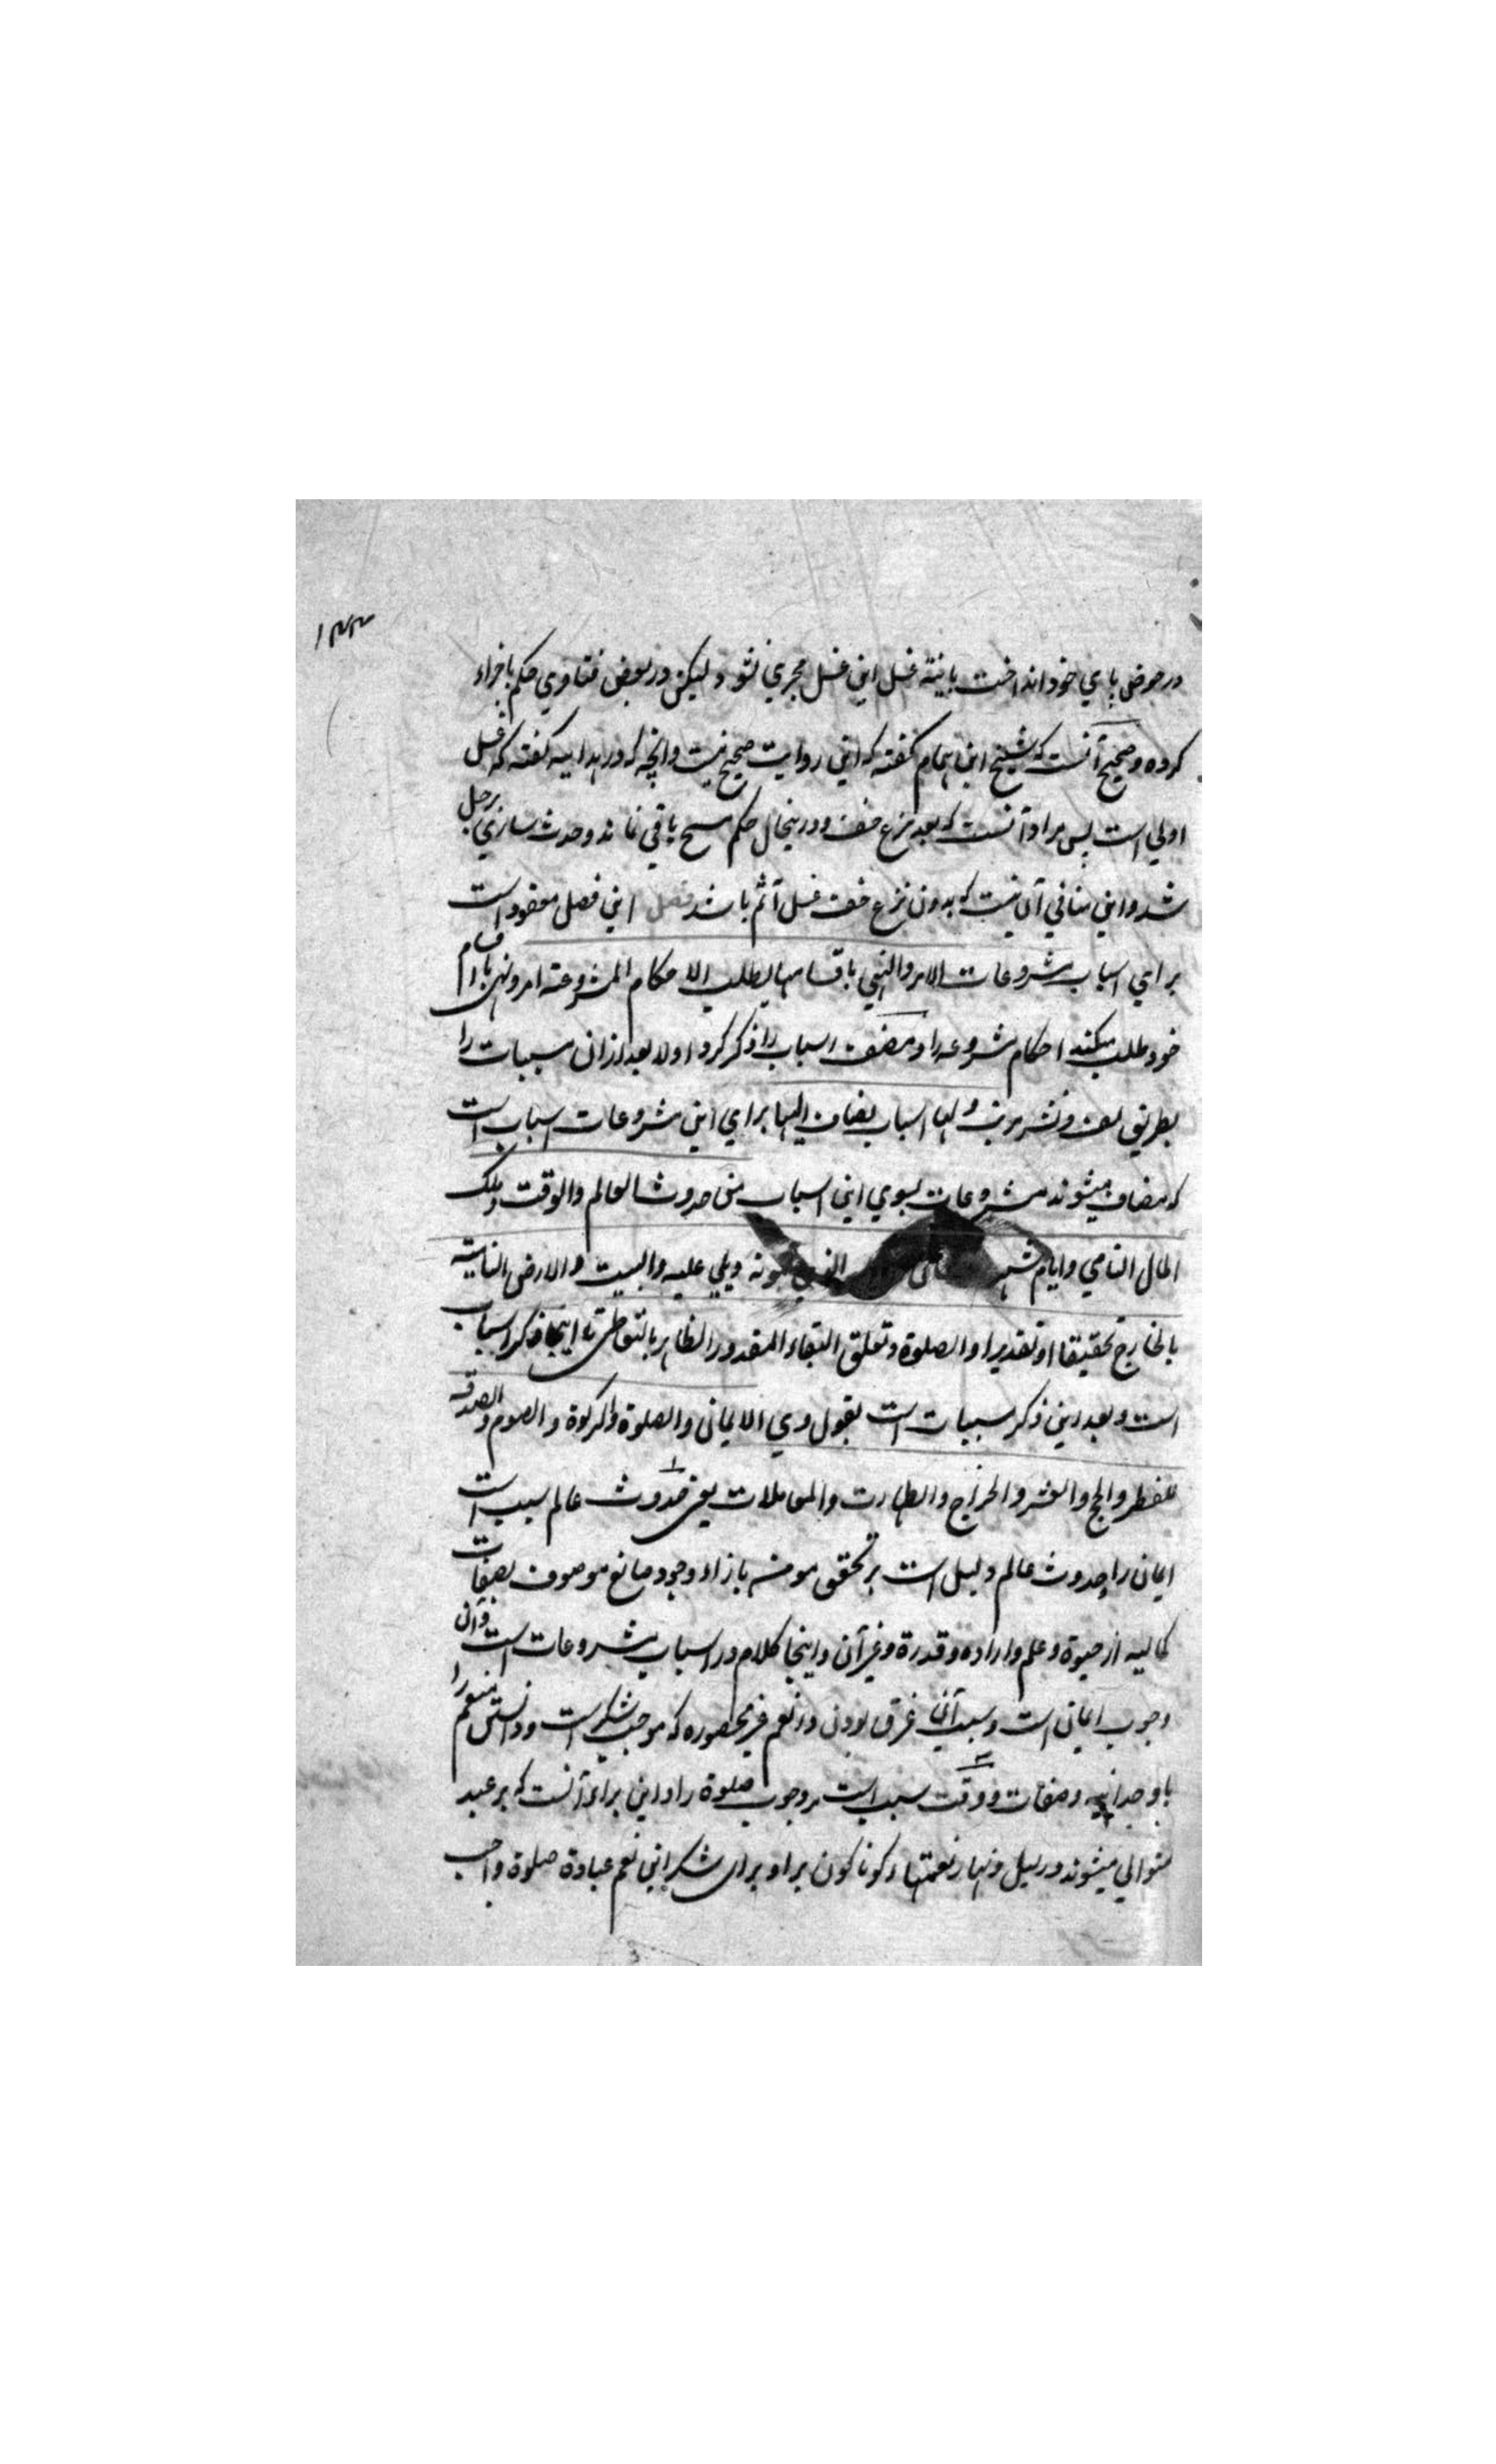 ۱۴۴
در حوض پاي خود انداخت بانیته غسل این غسل مجري نشود و لیکن در بعض فتاوي حکم باجزاء
کرده و صحیح آنست که شیخ ابن الهمام کفته که این روایت صحیح نیست وانچه که در هدایه کفته که غسل
اولي است پس مراد آنست که بعد نزع خف و درینحال حکم مسح باقي نماند وحدث ساري برجل
شد و این منافي آن نیست که بدون نزع خف غسل آثم باشد فصل این فصل معقود است
براي اسباب مشروعات الامر والنهي باقسامها یطلب الاحکام المشروعة امر ونهي با اقسام
خود طلب میکنند احکام مشروعه را و مصنف اسباب را ذکر کرد اولا بعد ازان مسببات را
بطریق لف ونشر مرتب ولها اسباب یضاف الیها براي این مشروعات اسباب است
که مضاف میشوند مشروعات بسوي این اسباب من حدوث العالم والوقت وملک
المال النامي وایام شهر الذي یمونه ویلي علیه والبیت والارض النامیة
بالخارج تحقیقا او تقدیرا والصلوة وتعلق البقاء المقدور الظاهر بالتعاطي تا اینجا ذکر اسباب
است وبعد ازین ذکر مسببات است بقول وي الایمان والصلوة والزکوة والصوم والصدقه
للفطر والحج والعشر والخراج والطهارت والمعاملات یعني حدوث عالم سبب است
ایمان را حدوث عالم دلیل است بر تحقق بازاء وجود صانع موصوف بصفات
کمالیه از حیوة وعلم واراده وقدرة وغیر آن واینجا کلام در اسباب مشروعات است وآن
وجوب ایمان است وسبب آن غرق بودن در نعم غیر محصوره که موجب شکر است ودانستن منعم را
با وحدانیه وصفات و وقت سبب است مر وجوب صلوة را و این براء آنست که بر عبد
متوالي میشوند در لیل ونهار نعمتهاء کوناکون بر او براي شکر این نعم عبادة صلوة واجب